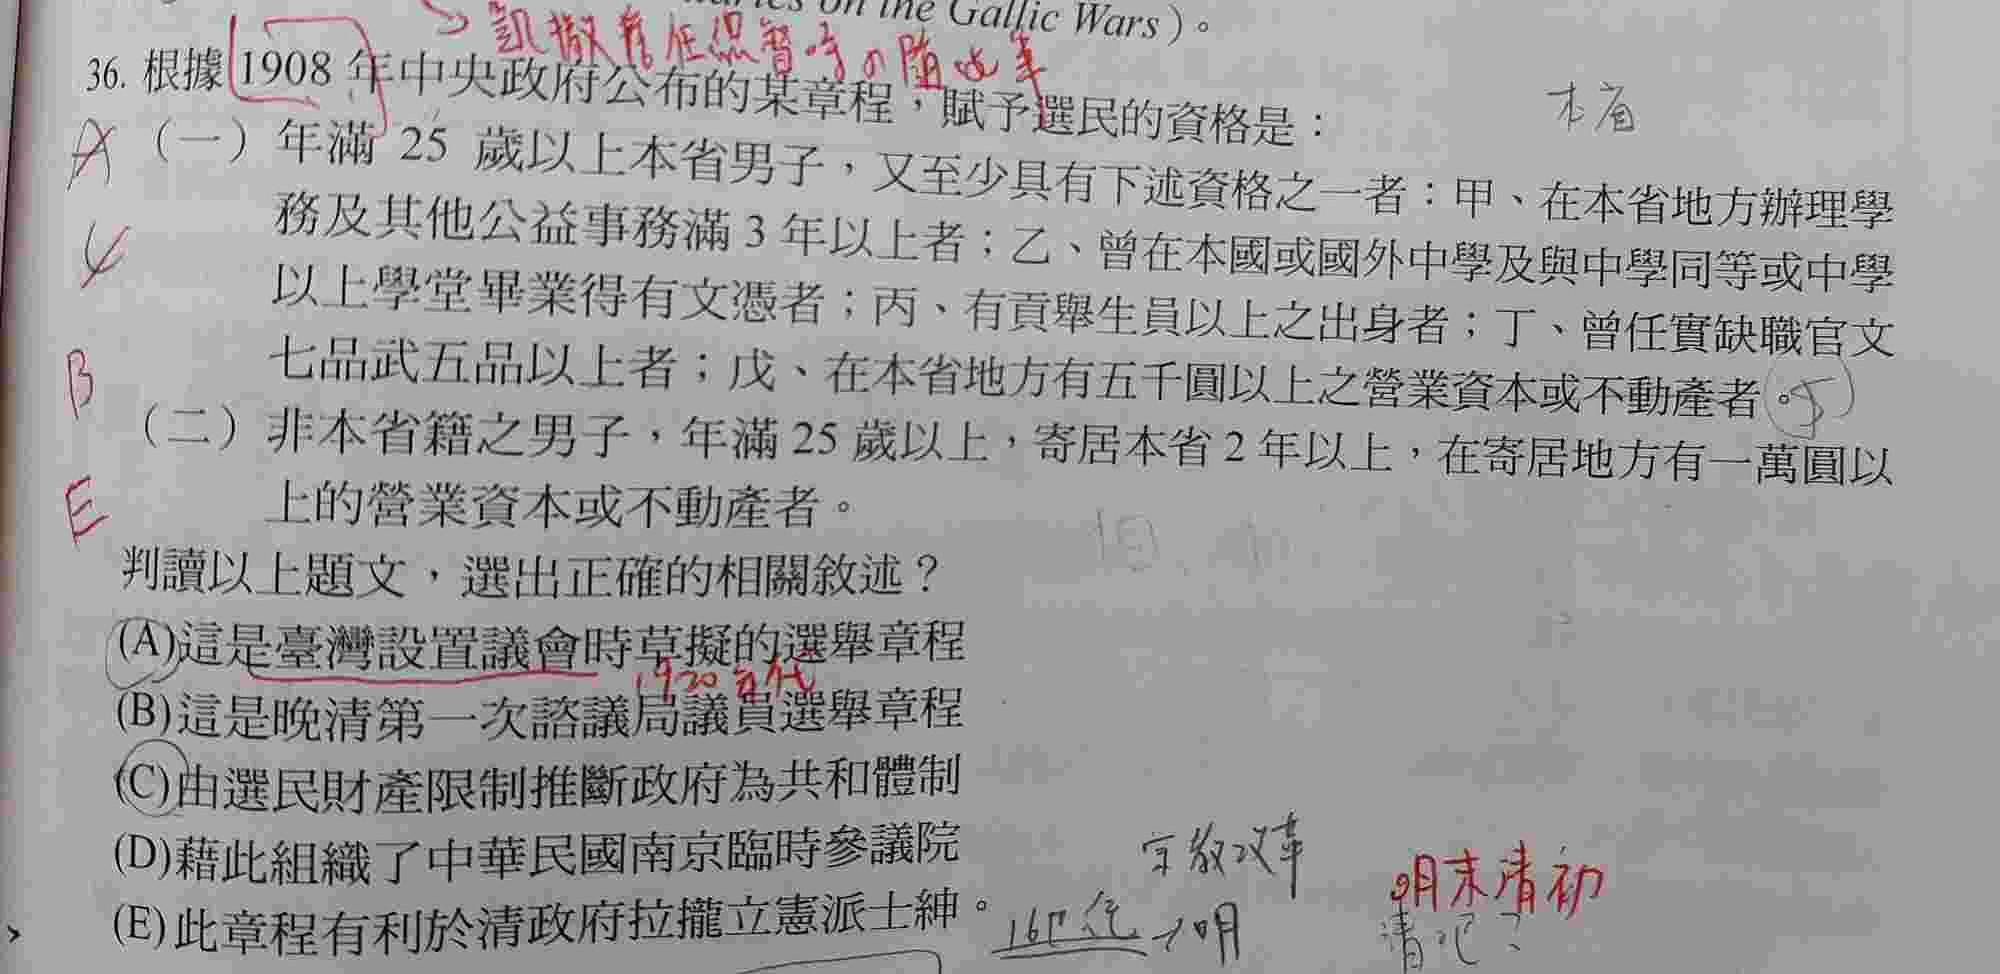 on the Gallic Wars）。
凱撒擔任 時の 改革
36. 根據 1908 年中央政府公布的某章程，賦予選民的資格是：
本省
A （一）年滿 25 歲以上本省男子，又至少具有下述資格之一者：甲、在本省地方辦理學
務及其他公益事務滿 3 年以上者；乙、曾在本國或國外中學及與中學同等或中學
以上學堂畢業得有文憑者；丙、有貢舉生員以上之出身者；丁、曾任實缺職官文
B 七品武五品以上者；戊、在本省地方有五千圓以上之營業資本或不動產者。5
（二）非本省籍之男子，年滿 25 歲以上，寄居本省 2 年以上，在寄居地方有一萬圓以
E 上的營業資本或不動產者。
判讀以上題文，選出正確的相關敘述？
(A)這是臺灣設置議會時草擬的選舉章程
1920年代
(B)這是晚清第一次諮議局議員選舉章程
(C)由選民財產限制推斷政府為共和體制
(D)藉此組織了中華民國南京臨時參議院
宗教改革
明末清初
(E)此章程有利於清政府拉攏立憲派士紳。
16 明
清